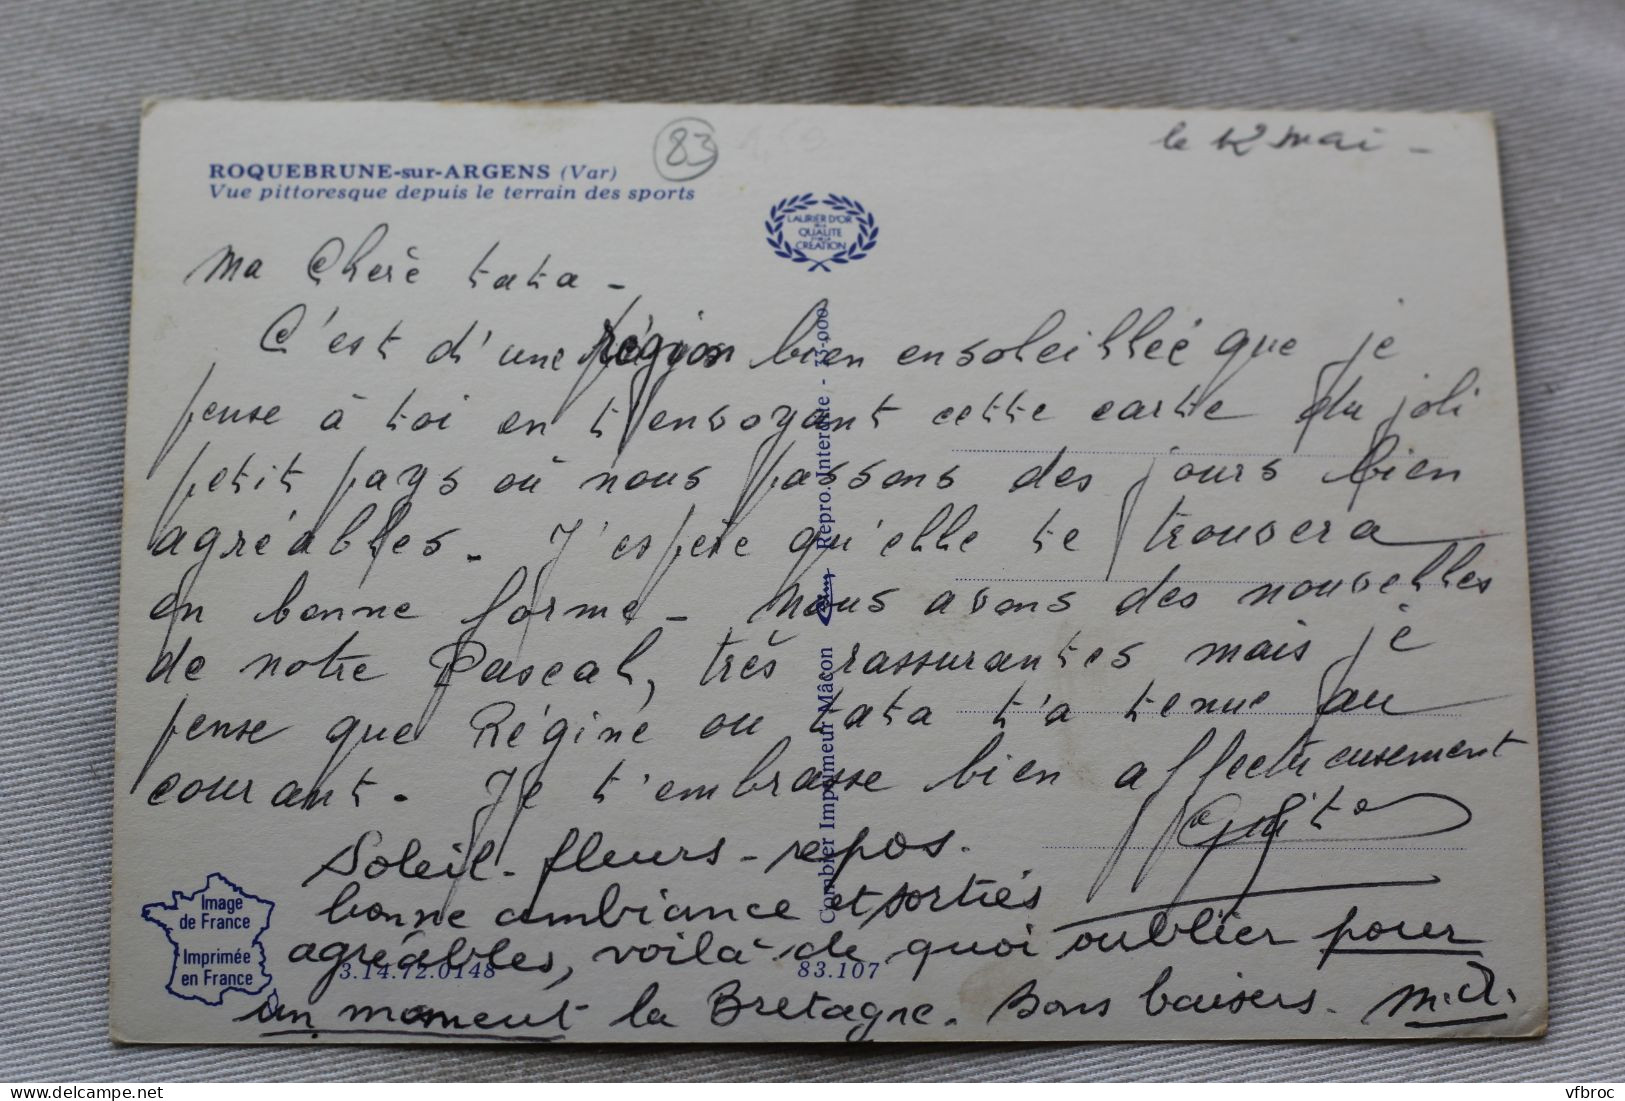 83
le 12 mai -
ROQUEBRUNE-sur-ARGENS (Var)
Vue pittoresque depuis le terrain des sports
LAURIER D'OR
DE LA
QUALITÉ
CRÉATION
Ma Chère tata -
C'est d'une région bien ensoleillée que je
pense à toi en t'envoyant cette carte du joli
petit pays où nous passons des jours bien
agréables. J'espère qu'elle te trouvera
en bonne forme - Nous avons des nouvelles
de notre Pascal, très rassurantes mais je
pense que Régine ou tata t'a tenue au
courant. Je t'embrasse bien affectueusement
Soleil - fleurs - repos.
bonne ambiance et sorties
agréables, voilà de quoi oublier pour
un moment la Bretagne. Bons baisers.
Combier Imprimeur Mâcon Cim Repro. Interdite - 33-000
Image
de France
Imprimée
en France
3.14.72.0148
83.107
vfbroc